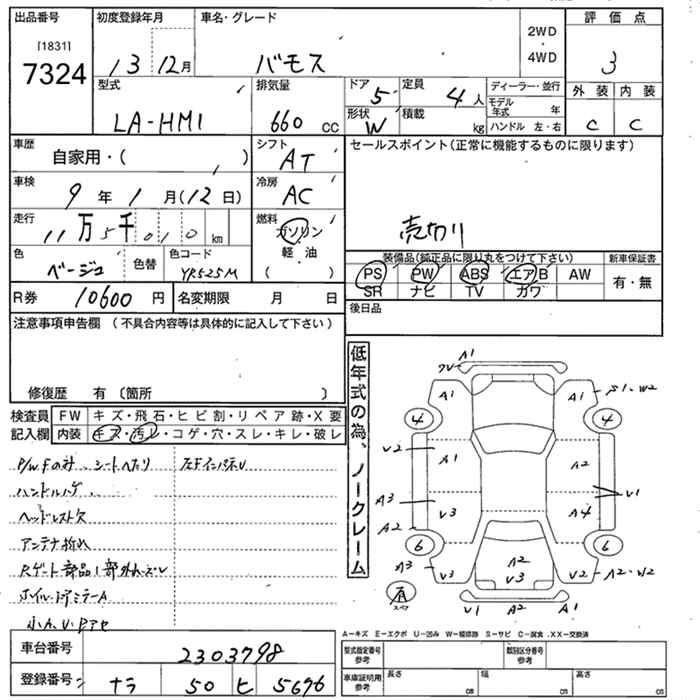 出品番号
[1831]
7324
初度登録年月
13 12月
車名・グレード
バモス
2WD
・
4WD
評価点
3
外装 内装
C C
型式
LA-HM1
排気量
660 CC
ドア
5
形状
W
定員
4人
積載
kg
ディーラー・並行
モデル年式 年
ハンドル 左・右
車歴
自家用・( )
シフト
AT
車検
9年 1月(12日)
冷房
AC
走行
11万5千010km
燃料
ガソリン
軽油
( )
色
ベージュ
色替
色コード
YR525M
R券 10600円
名変期限 月 日
セールスポイント(正常に機能するものに限ります)
売切り
装備品(純正品に限り丸をつけて下さい)
PS PW ABS エアB AW
SR ナビ TV カワ
新車保証書
有・無
後日品
注意事項申告欄 (不具合内容等は具体的に記入して下さい)
修復歴 有〔箇所 〕
検査員記入欄
FW キズ・飛石・ヒビ割・リペア跡・X要
内装 キズ・汚レ・コゲ・穴・スレ・キレ・破レ
P/W Fのみ シートヘタリ 左FインパネU
ハンドルハゲ
ヘッドレスト欠
アンテナ折れ
Rゲート部品1部外れ・ズレ
ホイル・ドアミラーA
小A.U.Pアセ
低年式の為、ノークレーム
A1
A1
A1
S1・W2
4
4
U2
A1
A2
A3
U3
A4
U1
A2
6
6
A3
U3
A2
U3
U2
A2・W2
有
スペア
U1 A2 A1
A-キズ E-エクボ U-凹み W-補修跡 S-サビ C-腐食 .XX-交換済
車台番号
2303798
登録番号
ナラ 50 ヒ 5676
型式指定番号
参考
類別区分番号
参考
車庫証明用
参考
長さ cm
幅 cm
高さ cm